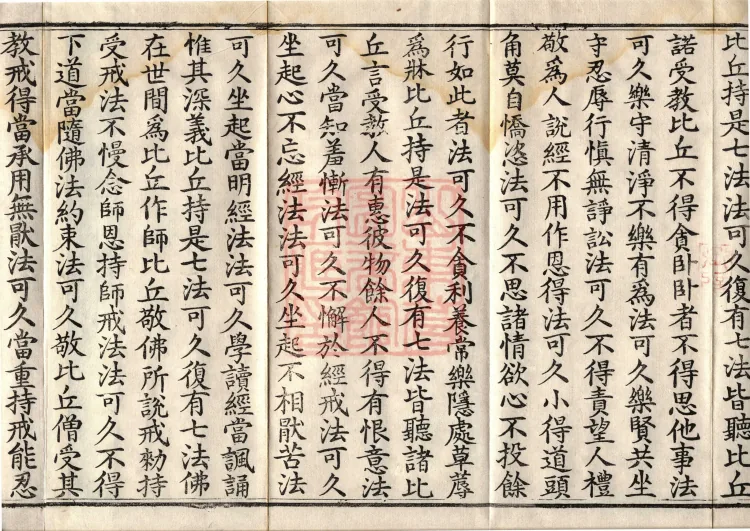 比丘持是七法法可久復有七法皆聽比丘
諾受教比丘不得貪卧卧者不得思他事法
可久樂守清淨不樂有為法可久樂賢共坐
守忍辱行慎無諍訟法可久不得責望人禮
敬為人說經不用作恩得法可久小得道頭
角莫自憍恣法可久不思諸情欲心不投餘
行如此者法可久不貪利養常樂隱處草蓐
為牀比丘持是法可久復有七法皆聽諸比
丘言受教人有惠彼物餘人不得有恨意法
可久當知羞慚法可久不懈於經戒法可久
坐起心不忘經法法可久坐起不相猒苦法
可久坐起當明經法法可久學讀經當諷誦
惟其深義比丘持是七法可久復有七法佛
在世間為比丘作師比丘敬佛所說戒勑持
受戒法不慢念師恩持師戒法法可久不得
下道當隨佛法約束法可久敬比丘僧受其
教戒得當承用無猒法可久當重持戒能忍